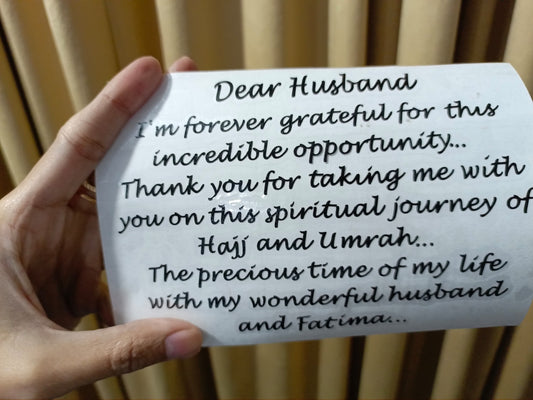 Dear Husband
I'm forever grateful for this
incredible opportunity...
Thank you for taking me with
you on this spiritual journey of
Hajj and Umrah...
The precious time of my life
with my wonderful husband
and Fatima...